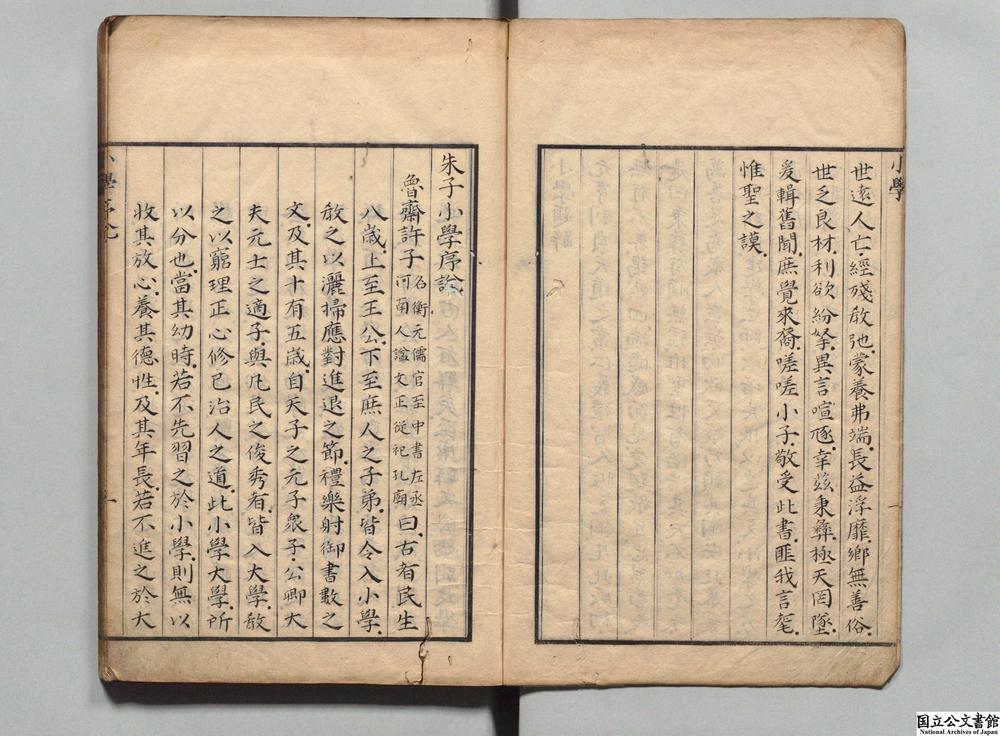 小學
世遠人亡經殘教弛蒙養弗端長益浮靡鄉無善俗
世乏良材利欲紛拏異言喧豗幸茲秉彝極天罔墜
爰輯舊聞庶覺來裔嗟嗟小子敬受此書匪我言耄
惟聖之謨
朱子小學序論
魯齋許子
名衡元儒官至中書左丞
河南人諡文正從祀孔廟
曰古有民生
八歲上至王公下至庶人之子弟皆令入小學
教之以灑掃應對進退之節禮樂射御書數之
文及其十有五歲自天子之元子衆子公卿大
夫元士之適子與凡民之俊秀者皆入大學教
之以窮理正心修己治人之道此小學大學所
以分也當其幼時若不先習之於小學則無以
收其放心養其德性及其年長若不進之於大
國立公文書館
National Archives of Japan